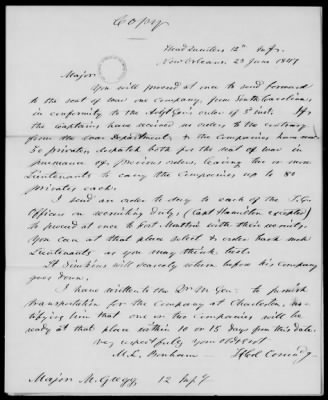 Copy
Head Quarters 12th Infy.
New Orleans, 23 June 1847
Major
You will proceed at once to send forward
to the seat of war one Company, from South Carolina,
in conformity to the Adjt Gen's order of 5 inst. If
the Captains have received no orders to the contrary
from the War Department, & the Companies have each
50 privates, dispatch both for the seat of war in
pursuance of previous orders, leaving two or more
Lieutenants to carry the Companies up to 80
privates each.
I send an order to day to each of the S.C.
Officers on recruiting duty, (Capt Hamilton excepted)
to proceed at once to Fort Moultrie with their recruits.
You can at that place select & order back such
Lieutenants as you may think best.
Lt Simkins will scarcely return before his Company
goes down.
I have written to the Qr M. Gen. to furnish
transportation for the Company at Charleston,
notifying him that one or two Companies will be
ready at that place within 10 or 15 days from this date.
Very respectfully your obdt Svt
M. L. Bonham
Lt Col Comndg
Major M. Gregg 12 Infy